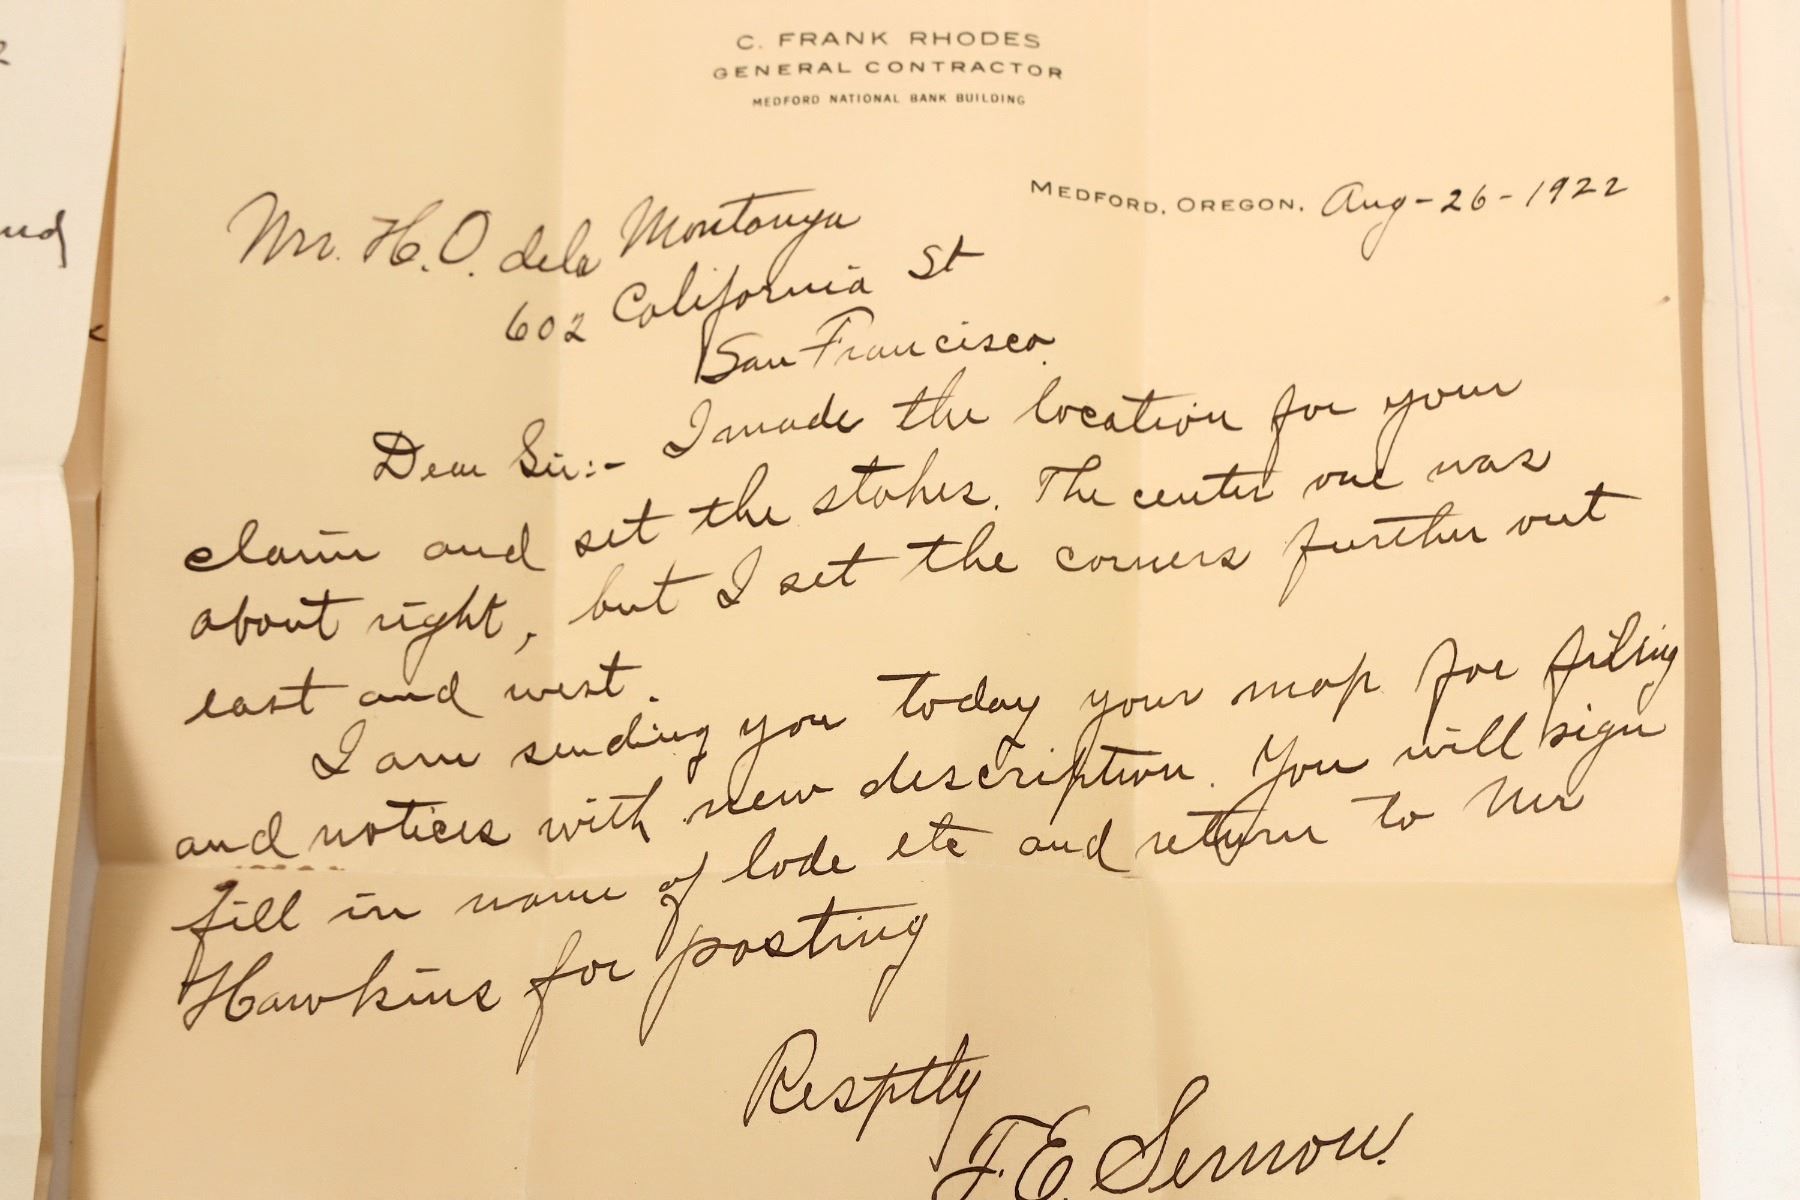 C. FRANK RHODES
GENERAL CONTRACTOR
MEDFORD NATIONAL BANK BUILDING
MEDFORD, OREGON. Aug-26-1922
Mr. H.O. dela Montanya
602 California St
San Francisco.
Dear Sir:- I made the location for your
claim and set the stakes. The center one was
about right, but I set the corners further out
east and west.
I am sending you today your map for filing
and notices with new description. You will sign
fill in name of lode etc and return to Mr
Hawkins for posting
Resptly